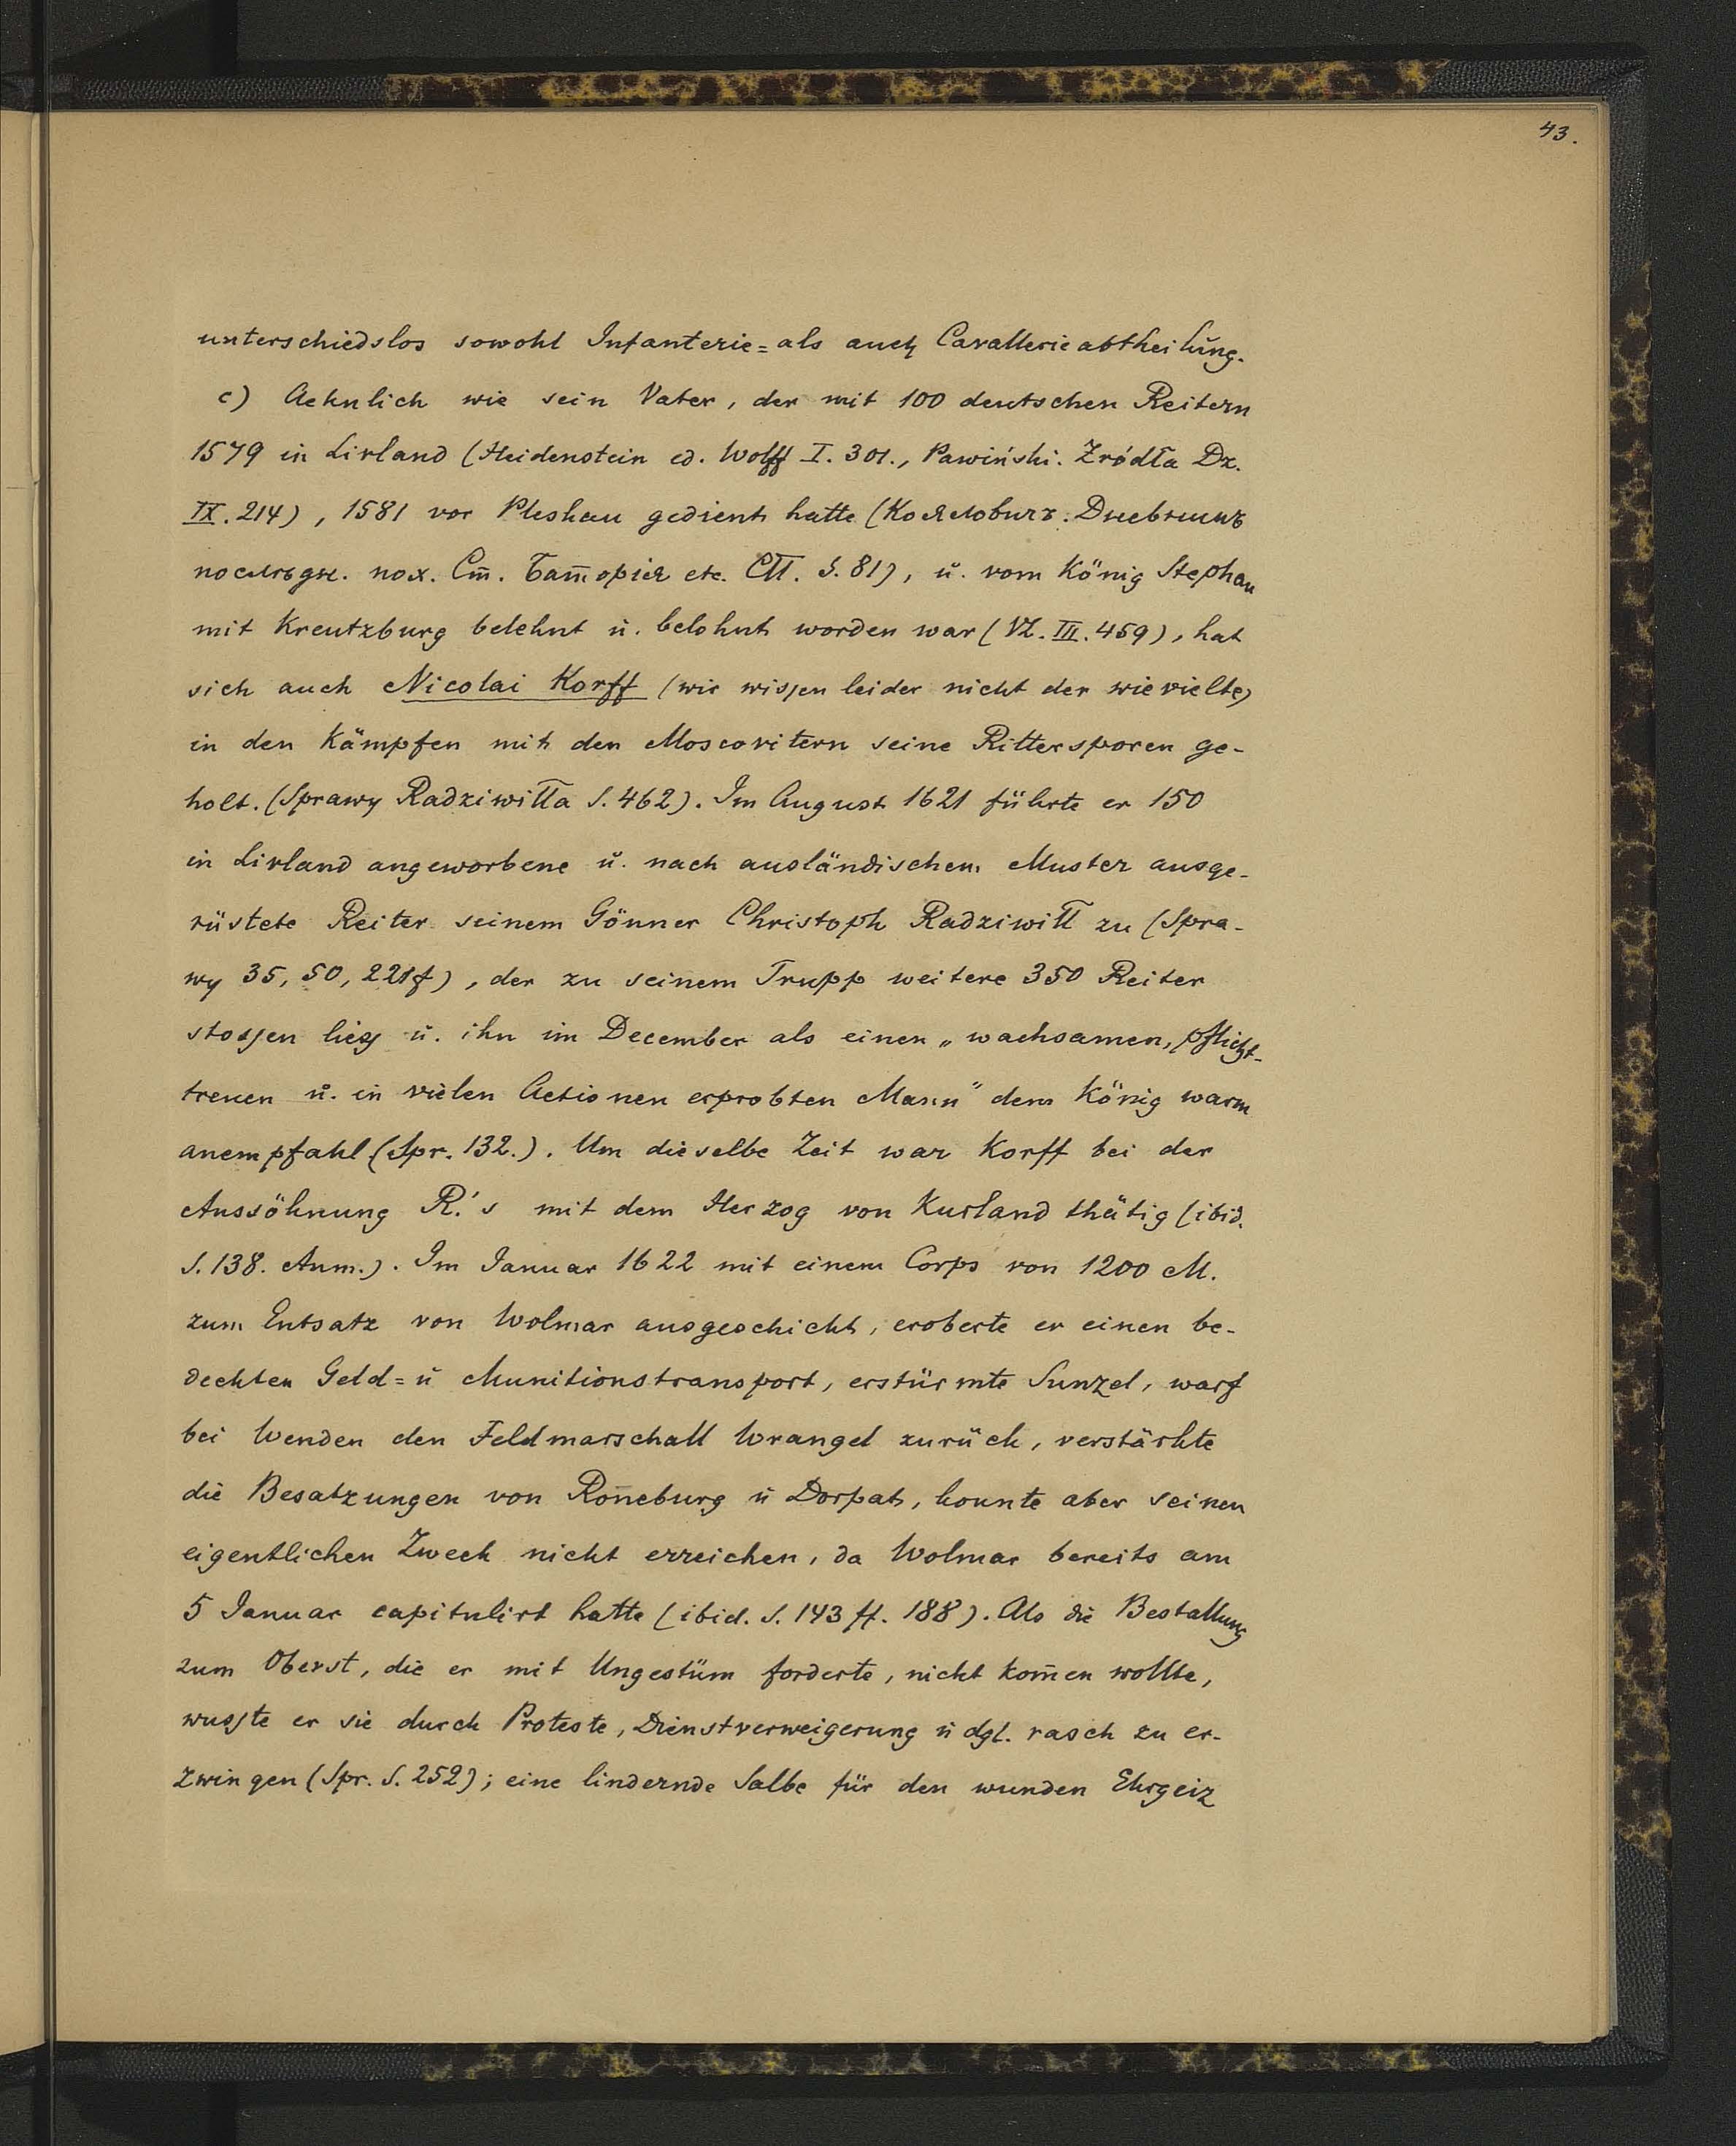 43.
unterschiedslos sowohl Infanterie= als auch Cavallerieabtheilung.
c) Aehnlich wie sein Vater, der mit 100 deutschen Reitern
1579 in Livland (Heidenstein ed. Wolff I. 301., Pawiński. Zródła Dz.
IX. 214), 1581 vor Pleskau gedient hatte (Кояловичъ. Дневникъ
послѣдн. пох. Ст. Баторія etc. СП. S. 81), u. vom König Stephan
mit Kreutzburg belehnt u. belohnt worden war (VL. III. 459), hat
sich auch Nicolai Korff (wir wissen leider nicht der wievielte)
in den Kämpfen mit den Moscovitern seine Rittersporen ge-
holt. (Sprawy Radziwiłła S. 462). Im August 1621 führte er 150
in Livland angeworbene u. nach ausländischem Muster ausge-
rüstete Reiter seinem Gönner Christoph Radziwiłł zu (Spra-
wy 35, 50, 221f), der zu seinem Trupp weitere 350 Reiter
stossen liess u. ihn im December als einen „wachsamen, pflicht-
treuen u. in vielen Actionen erprobten Mann" dem König warm
anempfahl (Spr. 132.). Um dieselbe Zeit war Korff bei der
Aussöhnung R.'s mit dem Herzog von Kurland thätig (ibid.
S. 138. Anm.). Im Januar 1622 mit einem Corps von 1200 M.
zum Entsatz von Wolmar ausgeschickt, eroberte er einen be-
deckten Geld= u Munitionstransport, erstürmte Sunzel, warf
bei Wenden den Feldmarschall Wrangel zurück, verstärkte
die Besatzungen von Roñeburg u Dorpat, konnte aber seinen
eigentlichen Zweck nicht erreichen, da Wolmar bereits am
5 Januar capitulirt hatte (ibid. S. 143 ff. 188). Als die Bestallung
zum Oberst, die er mit Ungestüm forderte, nicht kom̄en wollte,
wusste er sie durch Proteste, Dienstverweigerung u dgl. rasch zu er-
zwingen (Spr. S. 252); eine lindernde Salbe für den wunden Ehrgeiz